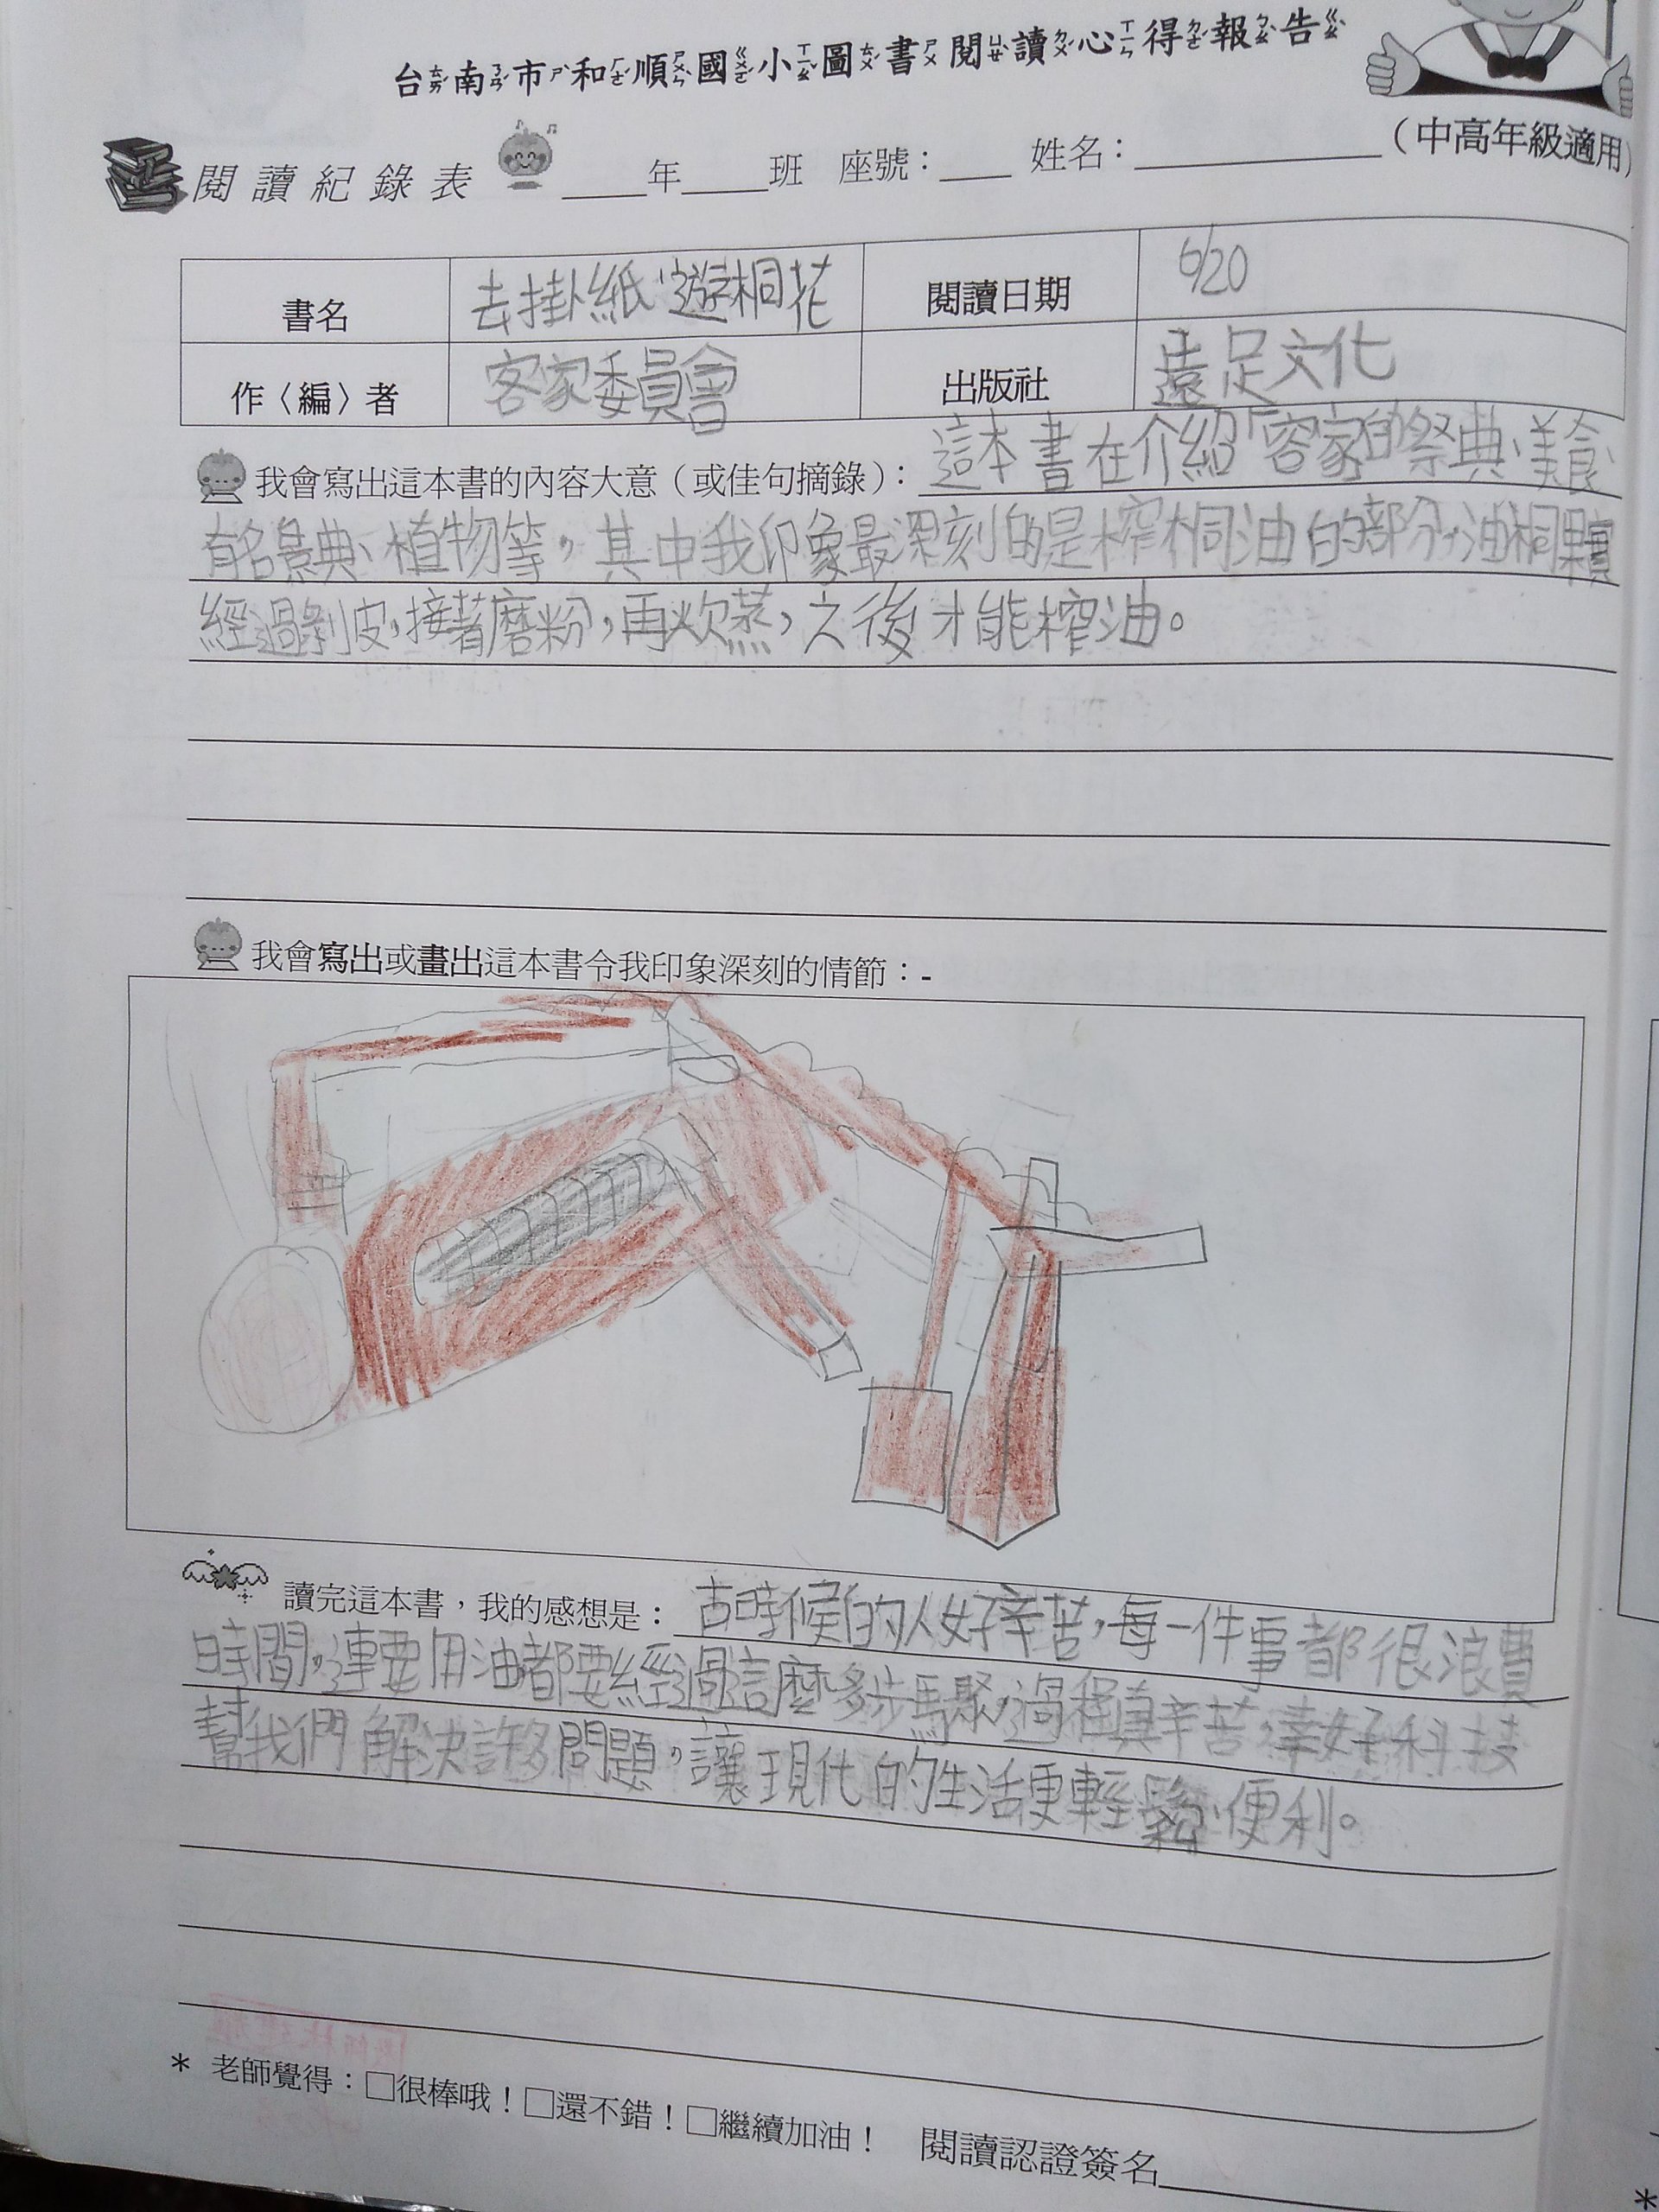 台南市和順國小圖書閱讀心得報告
閱讀紀錄表 ____年____班 座號：____ 姓名：________ （中高年級適用）
書名 去掛紙、遊桐花 閱讀日期 6/20
作〈編〉者 客家委員會 出版社 遠足文化
我會寫出這本書的內容大意（或佳句摘錄）：這本書在介紹「客家的祭典、美食、
有名景典、植物等，其中我印象最深刻的是榨桐油的部分，油桐顆
經過剝皮，接著磨粉，再炊蒸，之後才能榨油。
我會寫出或畫出這本書令我印象深刻的情節：-
讀完這本書，我的感想是：古時候的人好辛苦，每一件事都很浪費
時間，連要用油都要經過這麼多步驟，過程真辛苦，幸好科技
幫我們解決許多問題，讓現代的生活更輕鬆、便利。
* 老師覺得：□很棒哦！□還不錯！□繼續加油！ 閱讀認證簽名________